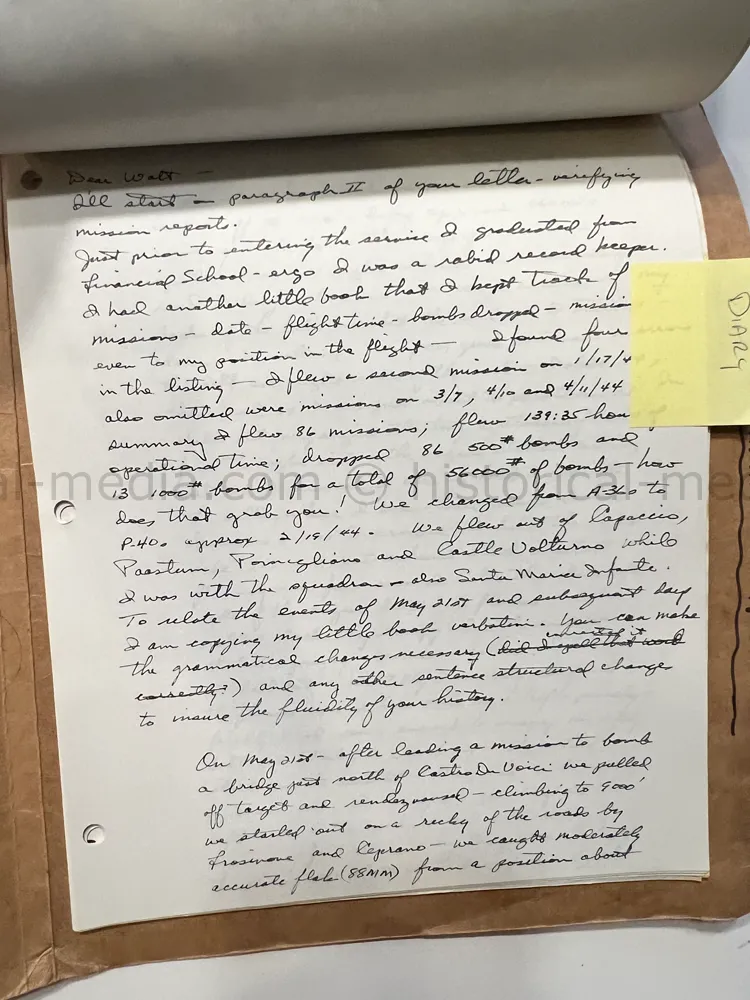 Dear Walt —
I'll start on paragraph II of your letter - verifying
mission reports.
Just prior to entering the service I graduated from
Financial School - ergo I was a rabid record keeper.
I had another little book that I kept track of
missions - date - flight time - bombs dropped - mission
even to my position in the flight — I found four
in the listing - I flew a second mission on 1/17/4
also omitted were missions on 3/7, 4/10 and 4/11/44.
summary I flew 86 missions; flew 139:35 hou
operational time; dropped 86 500# bombs and
13 1000# bombs for a total of 56000# of bombs - how
does that grab you! We changed from A-36s to
P-40s approx 2/19/44. We flew out of Capaccio,
Paastum, Pomigliano and Castle Volturno while
I was with the squadron - also Santa Maria Infante.
To relate the events of May 21st and subsequent days
I am copying my little book verbatim. You can make
the grammatical changes necessary (did I spell that word
correctly?) and any other sentence structural changes
to insure the fluidity of your history.
On May 21st - after leading a mission to bomb
a bridge just north of Castro Du Voici we pulled
off target and rendezvoused - climbing to 9000'
we started out on a recky of the roads by
Frosinone and Ceprano - we caught moderately
accurate flak (88MM) from a position about
DIARY
al-media.com © historical-me